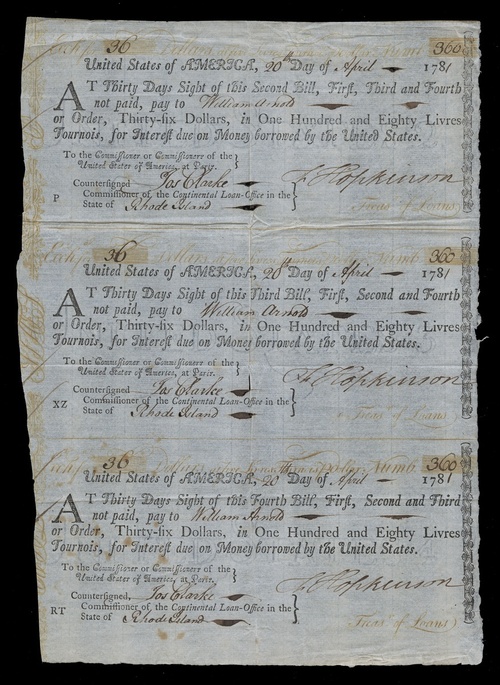 Exch. 36 Dollars Numb. 360
United States of AMERICA, 20th Day of April 1781
AT Thirty Days Sight of this Second Bill, First, Third and Fourth
not paid, pay to William Arnold
or Order, Thirty-six Dollars, in One Hundred and Eighty Livres
Tournois, for Interest due on Money borrowed by the United States.
To the Commissioner or Commissioners of the
United States of America, at Paris.
F. Hopkinson
Countersigned Jos Clarke
Commissioner of the Continental Loan-Office in the
Treas. of Loans
P State of Rhode Island
Exch. 36 Dollars Numb. 360
United States of AMERICA, 20th Day of April 1781
AT Thirty Days Sight of this Third Bill, First, Second and Fourth
not paid, pay to William Arnold
or Order, Thirty-six Dollars, in One Hundred and Eighty Livres
Tournois, for Interest due on Money borrowed by the United States.
To the Commissioner or Commissioners of the
United States of America, at Paris.
F. Hopkinson
Countersigned Jos Clarke
XZ Commissioner of the Continental Loan-Office in the
State of Rhode Island
Treas. of Loans
Exch. 36 Dollars Numb. 360
United States of AMERICA, 20th Day of April 1781
AT Thirty Days Sight of this Fourth Bill, First, Second and Third
not paid, pay to William Arnold
or Order, Thirty-six Dollars, in One Hundred and Eighty Livres
Tournois, for Interest due on Money borrowed by the United States.
To the Commissioner or Commissioners of the
United States of America, at Paris.
F. Hopkinson
Countersigned, Jos Clarke
RT Commissioner of the Continental Loan-Office in the
State of Rhode Island
Treas. of Loans